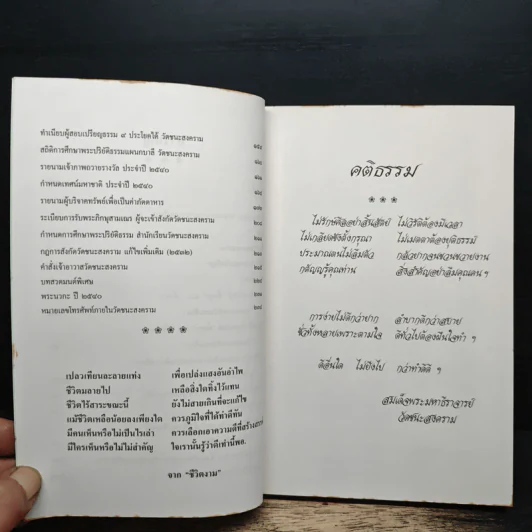 ทำเนียบผู้สอบเปรียญธรรม ๙ ประโยคได้ วัดชนะสงคราม
สถิติการศึกษาพระปริยัติธรรมแผนกบาลี วัดชนะสงคราม
รายนามเจ้าภาพถวายรางวัล ประจำปี ๒๕๔๐
กำหนดเทศน์มหาชาติ ประจำปี ๒๕๔๐
รายนามผู้บริจาคทรัพย์เพื่อเป็นค่าภัตตาหาร
ระเบียบการรับพระภิกษุสามเณร ผู้จะเข้าสังกัดวัดชนะสงคราม
กำหนดการศึกษาพระปริยัติธรรม สำนักเรียนวัดชนะสงคราม
กฎการสังกัดวัดชนะสงคราม แก้ไขเพิ่มเติม
คำสั่งเจ้าอาวาสวัดชนะสงคราม
บทสวดมนต์พิเศษ
พระนวกะ ปี ๒๕๔๐
หมายเลขโทรศัพท์ภายในวัดชนะสงคราม
เปลวเทียนละลายแท่ง เพื่อเปล่งแสงอันอำไพ
ชีวิตมลายไป เหลือสิ่งใดทิ้งไว้แทน
ชีวิตไร้สาระขณะนี้ ยังไม่สายเกินที่จะแก้ไข
แม้ชีวิตเหลือน้อยลงเพียงใด ควรภูมิใจที่ได้ทำดีทัน
มีคนเห็นหรือไม่เป็นไรเล่า ควรเลือกเอาความดีที่
มีใครเห็นหรือไม่ไม่สำคัญ ใจเรานั้นรู้ว่าดีเท่านี้พอ.
จาก "ชีวิตงาม"
คติธรรม
ไม่รักษาศีลอย่าสิ้นสัตย์ ไม่วิรัติต้องมีเวลา
ไม่เมตตาต้องยุติธรรม
ประมาณตนไม่ลืมตัว กลัวยากจนขวนขวายงาน
กตัญญูรู้คุณท่าน สิ่งสำคัญอย่าลืมคุณตน ฯ
การง่ายไม่ดีกว่ายาก ลำบากดีกว่าสบาย
ชั่วทั้งหลายเพราะตามใจ ดีทั่วไปต้องฝืนใจทำ ฯ
ดีอื่นใด ไม่ยิ่งไป กว่าทำดีดี ฯ
สมเด็จพระมหาธีราจารย์
วัดชนะสงคราม